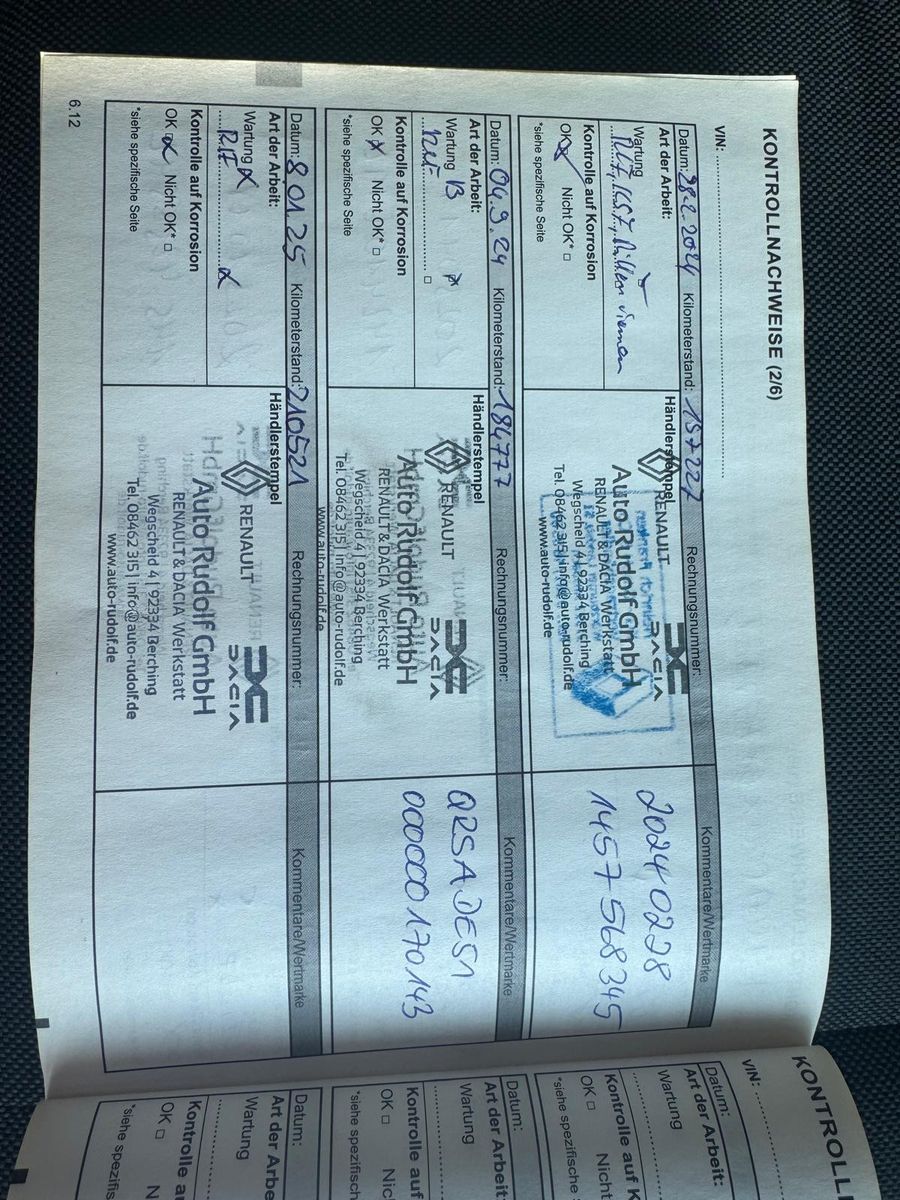 KONTROLLNACHWEISE (2/6)
VIN:
Datum: 28.2.2024 Kilometerstand: 157227 Rechnungsnummer: Kommentare/Wertmarke
Art der Arbeit:
Wartung
Kontrolle auf Korrosion
OK Nicht OK* □
*siehe spezifische Seite
Händlerstempel
RENAULT DACIA
Auto Rudolf GmbH
RENAULT & DACIA Werkstatt
Wegscheid 4 | 92334 Berching
Tel. 08462 315 | info@auto-rudolf.de
www.auto-rudolf.de
20240228
1457568345
Datum: 04.9.24 Kilometerstand: 184777 Rechnungsnummer: Kommentare/Wertmarke
Art der Arbeit:
Wartung B
Kontrolle auf Korrosion
OK Nicht OK* □
*siehe spezifische Seite
Händlerstempel
RENAULT DACIA
Auto Rudolf GmbH
RENAULT & DACIA Werkstatt
Wegscheid 4 | 92334 Berching
Tel. 08462 315 | info@auto-rudolf.de
www.auto-rudolf.de
QRSADE51
000000170143
Datum: 8.01.25 Kilometerstand: 210521 Rechnungsnummer: Kommentare/Wertmarke
Art der Arbeit:
Wartung
Kontrolle auf Korrosion
OK Nicht OK* □
*siehe spezifische Seite
Händlerstempel
RENAULT DACIA
Auto Rudolf GmbH
RENAULT & DACIA Werkstatt
Wegscheid 4 | 92334 Berching
Tel. 08462 315 | info@auto-rudolf.de
www.auto-rudolf.de
6.12
KONTROLL
VIN:
Datum:
Art der Arbeit:
Wartung
Kontrolle auf K
OK □ Nicht
*siehe spezifisch
Datum:
Art der Arbeit:
Wartung
Kontrolle auf
OK □ Nich
*siehe spezifisch
Datum:
Art der Arbe
Wartung
Kontrolle au
OK □ N
*siehe spezifis